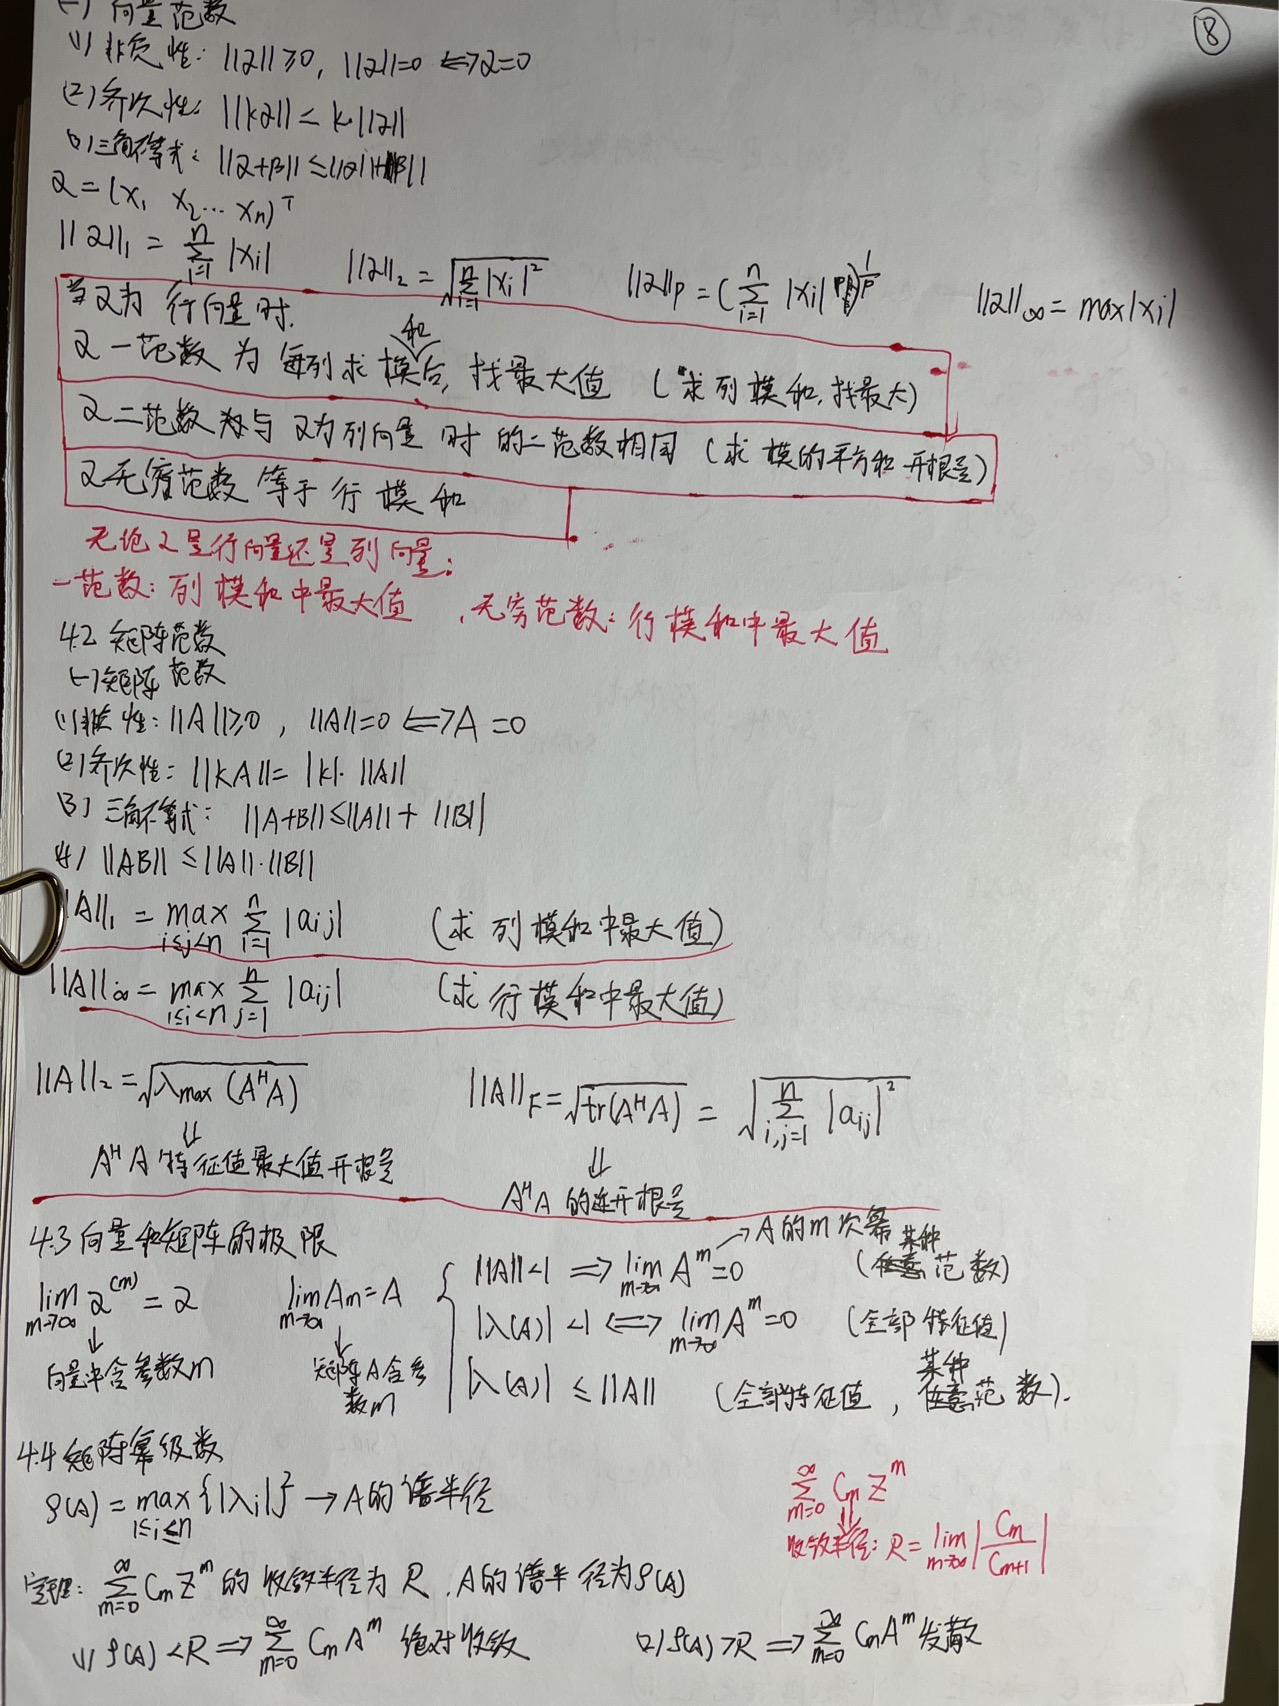 ⑧
(一) 向量范数
(1) 非负性: ||α||≥0, ||α||=0 ⟺ α=0
(2) 齐次性: ||kα|| = k·||α||
(3) 三角不等式: ||α+β|| ≤ ||α||+||β||
α = (x₁ x₂ … xₙ)ᵀ
||α||₁ = ∑_{i=1}^{n} |xᵢ| ||α||₂ = √(∑_{i=1}^{n} |xᵢ|²) ||α||_p = (∑_{i=1}^{n} |xᵢ|^p)^{1/p} ||α||_∞ = max|xᵢ|
当α为 行向量时.
α 一范数 为 每列求模和后, 找最大值 (求列模和, 找最大)
α 二范数 为与 α为列向量 时 的二范数相同 (求 模的平方和 开根号)
α 无穷范数 等于 行 模 和
无论 α 是行向量还是列向量:
一范数: 列 模和中最大值 , 无穷范数: 行模和中最大值
4.2 矩阵范数
(一) 矩阵 范数
(1) 非负性: ||A||≥0, ||A||=0 ⟺ A=0
(2) 齐次性: ||kA|| = |k|·||A||
(3) 三角不等式: ||A+B|| ≤ ||A|| + ||B||
(4) ||AB|| ≤ ||A||·||B||
||A||₁ = max_{i≤j<n} ∑_{i=1}^{n} |aᵢⱼ| (求 列模和中最大值)
||A||_∞ = max_{1≤i<n} ∑_{j=1}^{n} |aᵢⱼ| (求 行模和中最大值)
||A||₂ = √(λ_max (AᴴA)) ||A||_F = √(tr(AᴴA)) = √(∑_{i,j=1}^{n} |aᵢⱼ|²)
⇓ ⇓
AᴴA 特征值最大值开根号 AᴴA 的迹开根号
4.3 向量和矩阵的极限
lim_{m→∞} α^{(m)} = α lim_{m→∞} Aₘ = A
↓ ↓
向量中含参数m 矩阵A含参数m
→ A的m次幂
||A||<1 ⟹ lim_{m→∞} A^m = 0 (某种范数)
|λ(A)| <1 ⟺ lim_{m→∞} A^m = 0 (全部特征值)
|λ(A)| ≤ ||A|| (全部特征值, 某种范数).
4.4 矩阵幂级数
ρ(A) = max_{1≤i≤n} {|λᵢ|} → A的谱半径
∑_{m=0}^{∞} Cₘ Z^m
⇓
收敛半径: R = lim_{m→∞} |Cₘ / Cₘ₊₁|
定理: ∑_{m=0}^{∞} Cₘ Z^m 的 收敛半径为 R, A的谱半径为ρ(A)
(1) ρ(A) < R ⟹ ∑_{m=0}^{∞} Cₘ A^m 绝对收敛 (2) ρ(A) > R ⟹ ∑_{m=0}^{∞} Cₘ A^m 发散